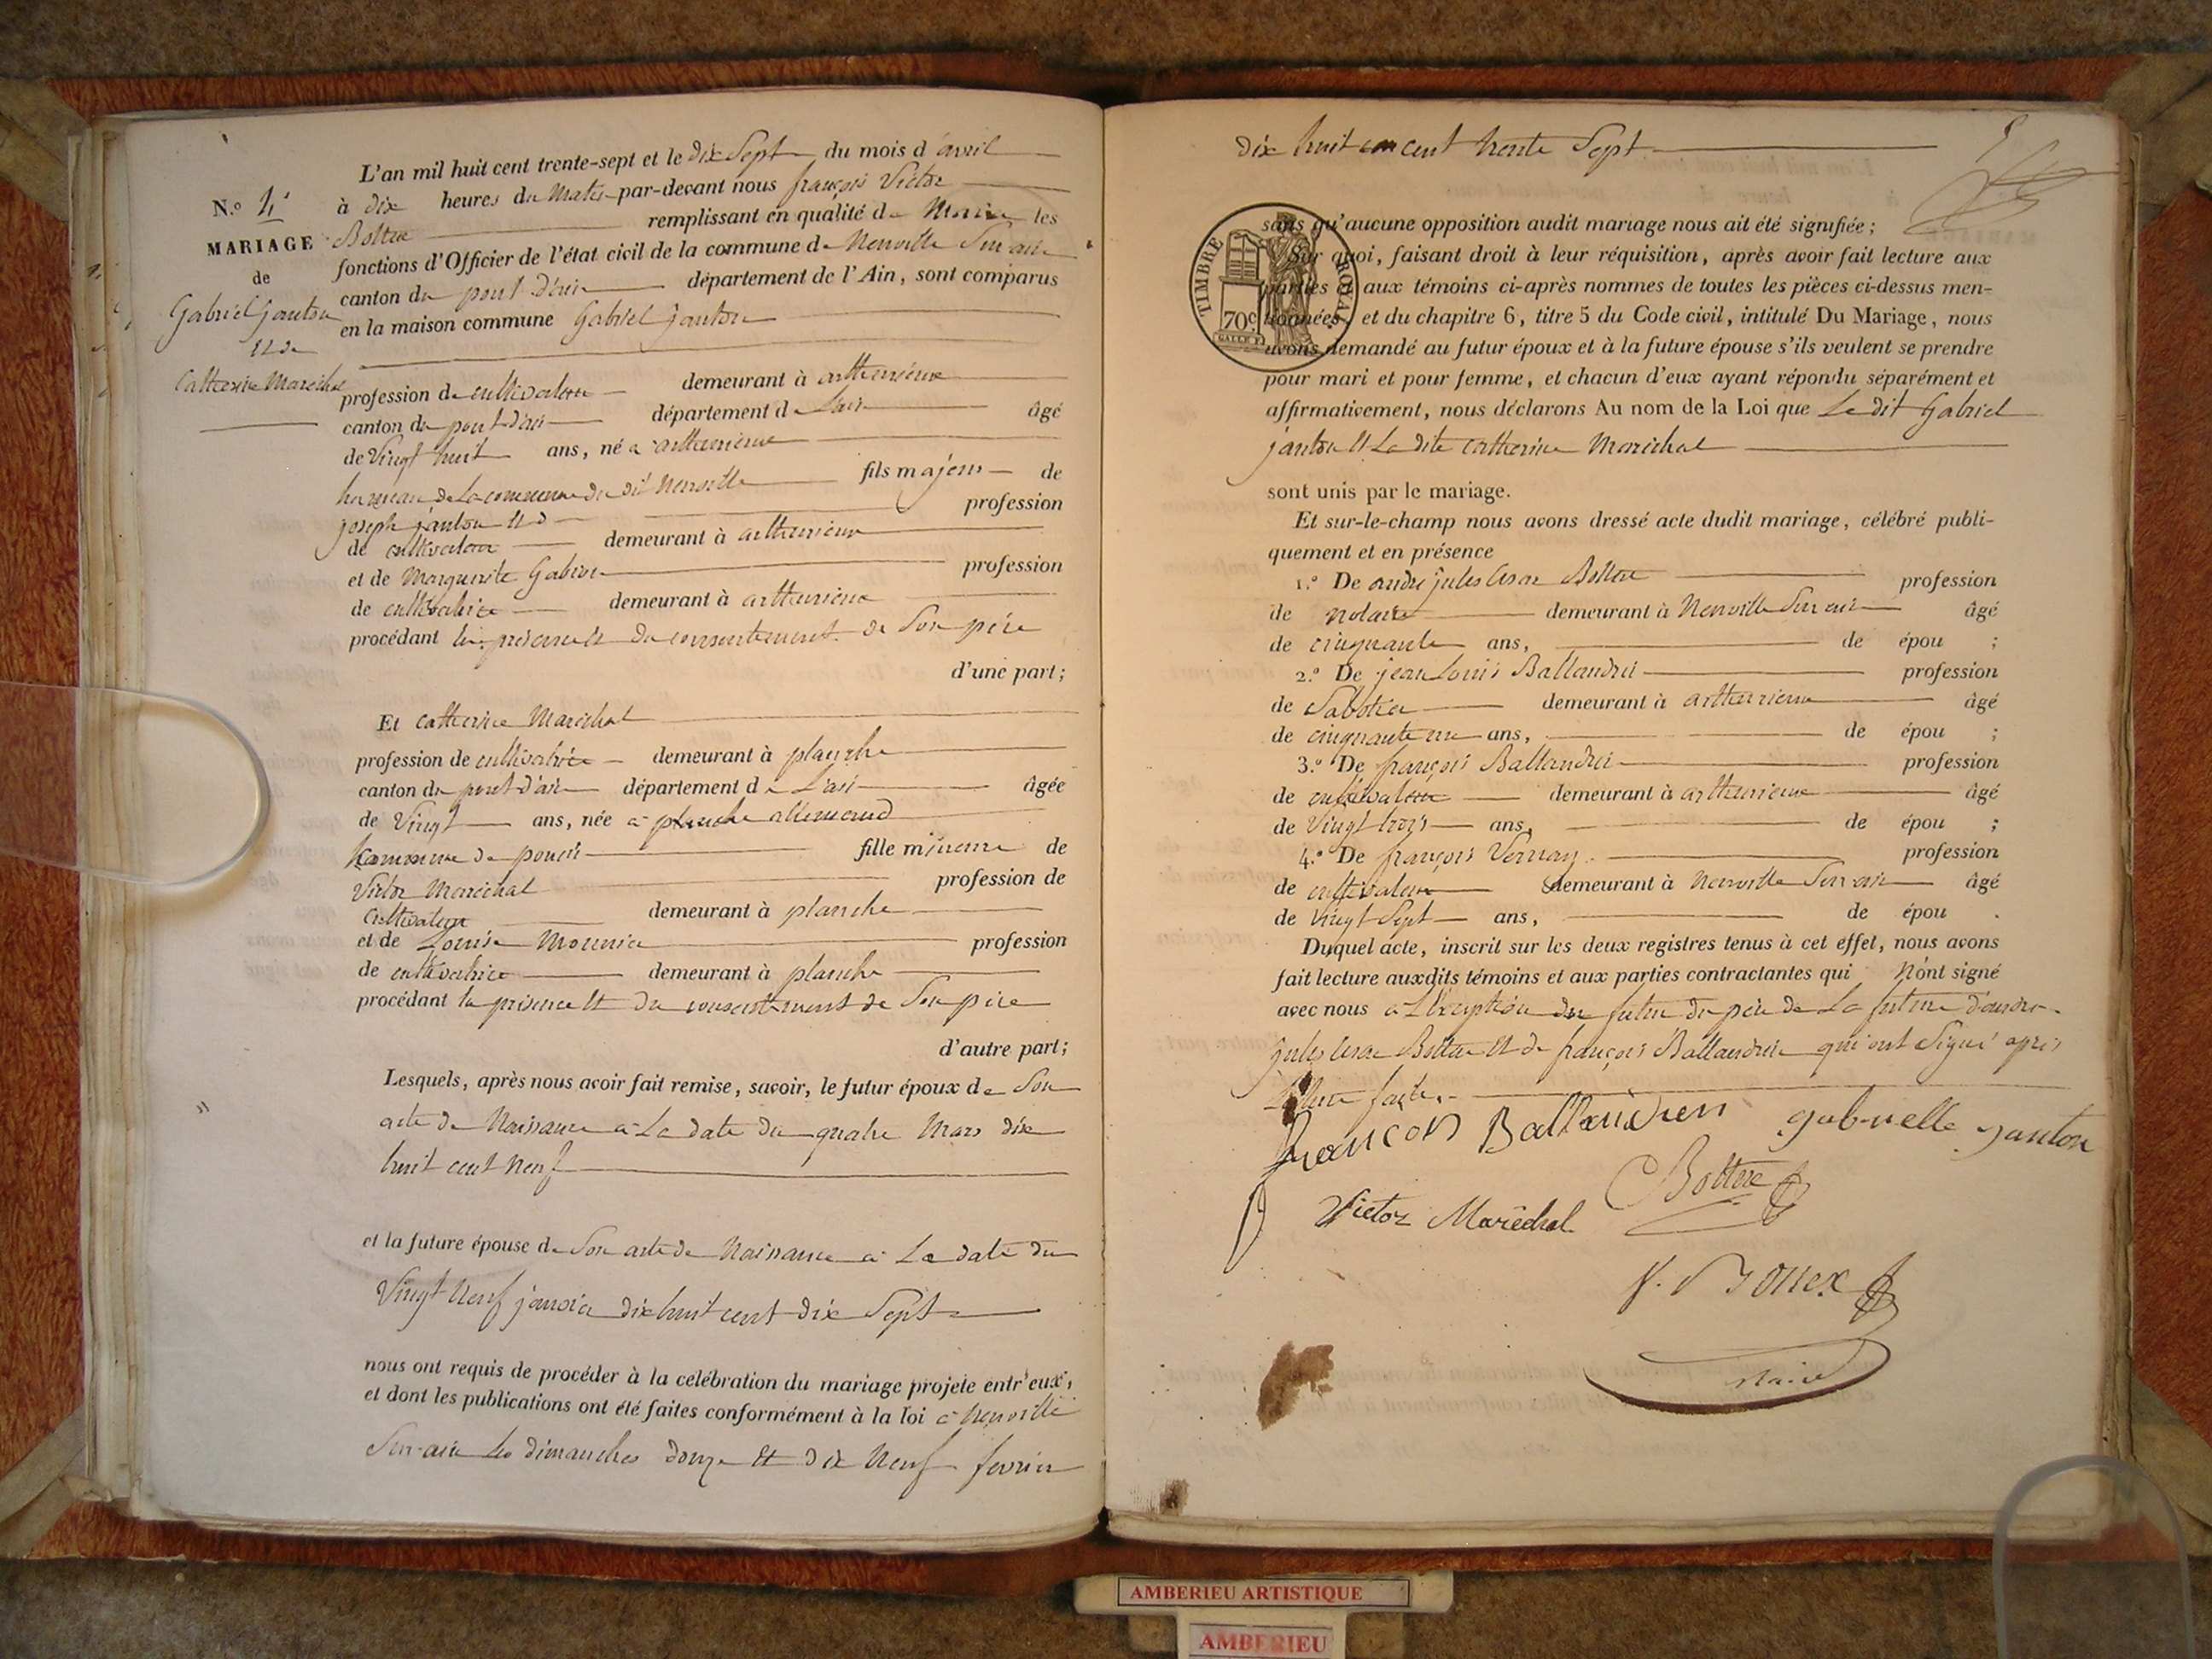 N.º 4
MARIAGE
de
Gabriel Janton
et de
Catherine Maréchal
L'an mil huit cent trente-sept et le dix Sept du mois d'avril
à dix heures du Matin par-devant nous françois Victor
Bottex remplissant en qualité de Maire les
fonctions d'Officier de l'état civil de la commune de Neuville Sur ain
canton du pont d'ain département de l'Ain, sont comparus
en la maison commune Gabriel Janton
profession de cultivateur demeurant à
canton du pont d'ain département de L'ain âgé
de Vingt huit ans, né à
hameau de La commune du dit Neuville fils majeur de
joseph janton et d profession
de cultivateur demeurant à
et de Marguerite profession
de cultivatrice demeurant à
procédant en présence et du consentement de Son père
d'une part;
Et Catherine Maréchal
profession de cultivatrice demeurant à planche
canton du pont d'ain département de L'ain âgée
de Vingt ans, née à planche allemand
Commune de poncin fille mineure de
Victor Maréchal profession de
Cultivateur demeurant à planche
et de Louise profession
de cultivatrice demeurant à planche
procédant en présence et du consentement de Son père
d'autre part;
Lesquels, après nous avoir fait remise, savoir, le futur époux de Son
acte de Naissance à La date du quatre Mars dix
huit cent Neuf
et la future épouse de Son acte de Naissance à La date du
Vingt Neuf janvier dix huit cent dix Sept
nous ont requis de procéder à la célébration du mariage projeté entr'eux,
et dont les publications ont été faites conformément à la loi à Neuville
Sur-ain Les dimanches douze et dix Neuf fevrier
dix huit cent trente Sept
sans qu'aucune opposition audit mariage nous ait été signifiée;
Sur quoi, faisant droit à leur réquisition, après avoir fait lecture aux
parties et aux témoins ci-après nommes de toutes les pièces ci-dessus men-
tionnées, et du chapitre 6, titre 5 du Code civil, intitulé Du Mariage, nous
avons demandé au futur époux et à la future épouse s'ils veulent se prendre
pour mari et pour femme, et chacun d'eux ayant répondu séparément et
affirmativement, nous déclarons Au nom de la Loi que Le dit Gabriel
janton et La dite Catherine Maréchal
sont unis par le mariage.
Et sur-le-champ nous avons dressé acte dudit mariage, célébré publi-
quement et en présence
1.º De andré jules César Bottex profession
de notaire demeurant à Neuville Sur ain âgé
de cinquante ans, de épou ;
2.º De jean Louis Ballandrin profession
de Sabotier demeurant à âgé
de cinquante un ans, de épou ;
3.º De françois Ballandrin profession
de cultivateur demeurant à âgé
de Vingt trois ans, de épou ;
4.º De françois Vernay profession
de cultivateur demeurant à Neuville Sur ain âgé
de Vingt Sept ans, de épou .
Duquel acte, inscrit sur les deux registres tenus à cet effet, nous avons
fait lecture auxdits témoins et aux parties contractantes qui N'ont signé
avec nous à L'exception du futur du père de La future d'andré
jules César Bottex et de françois Ballandrin qui ont Signé après
Lecture faite.
TIMBRE ROYAL
70c
françois Ballandren gabrielle Janton
Bottex
Victor Maréchal
V. Bottex
Maire
AMBERIEU ARTISTIQUE
AMBERIEU